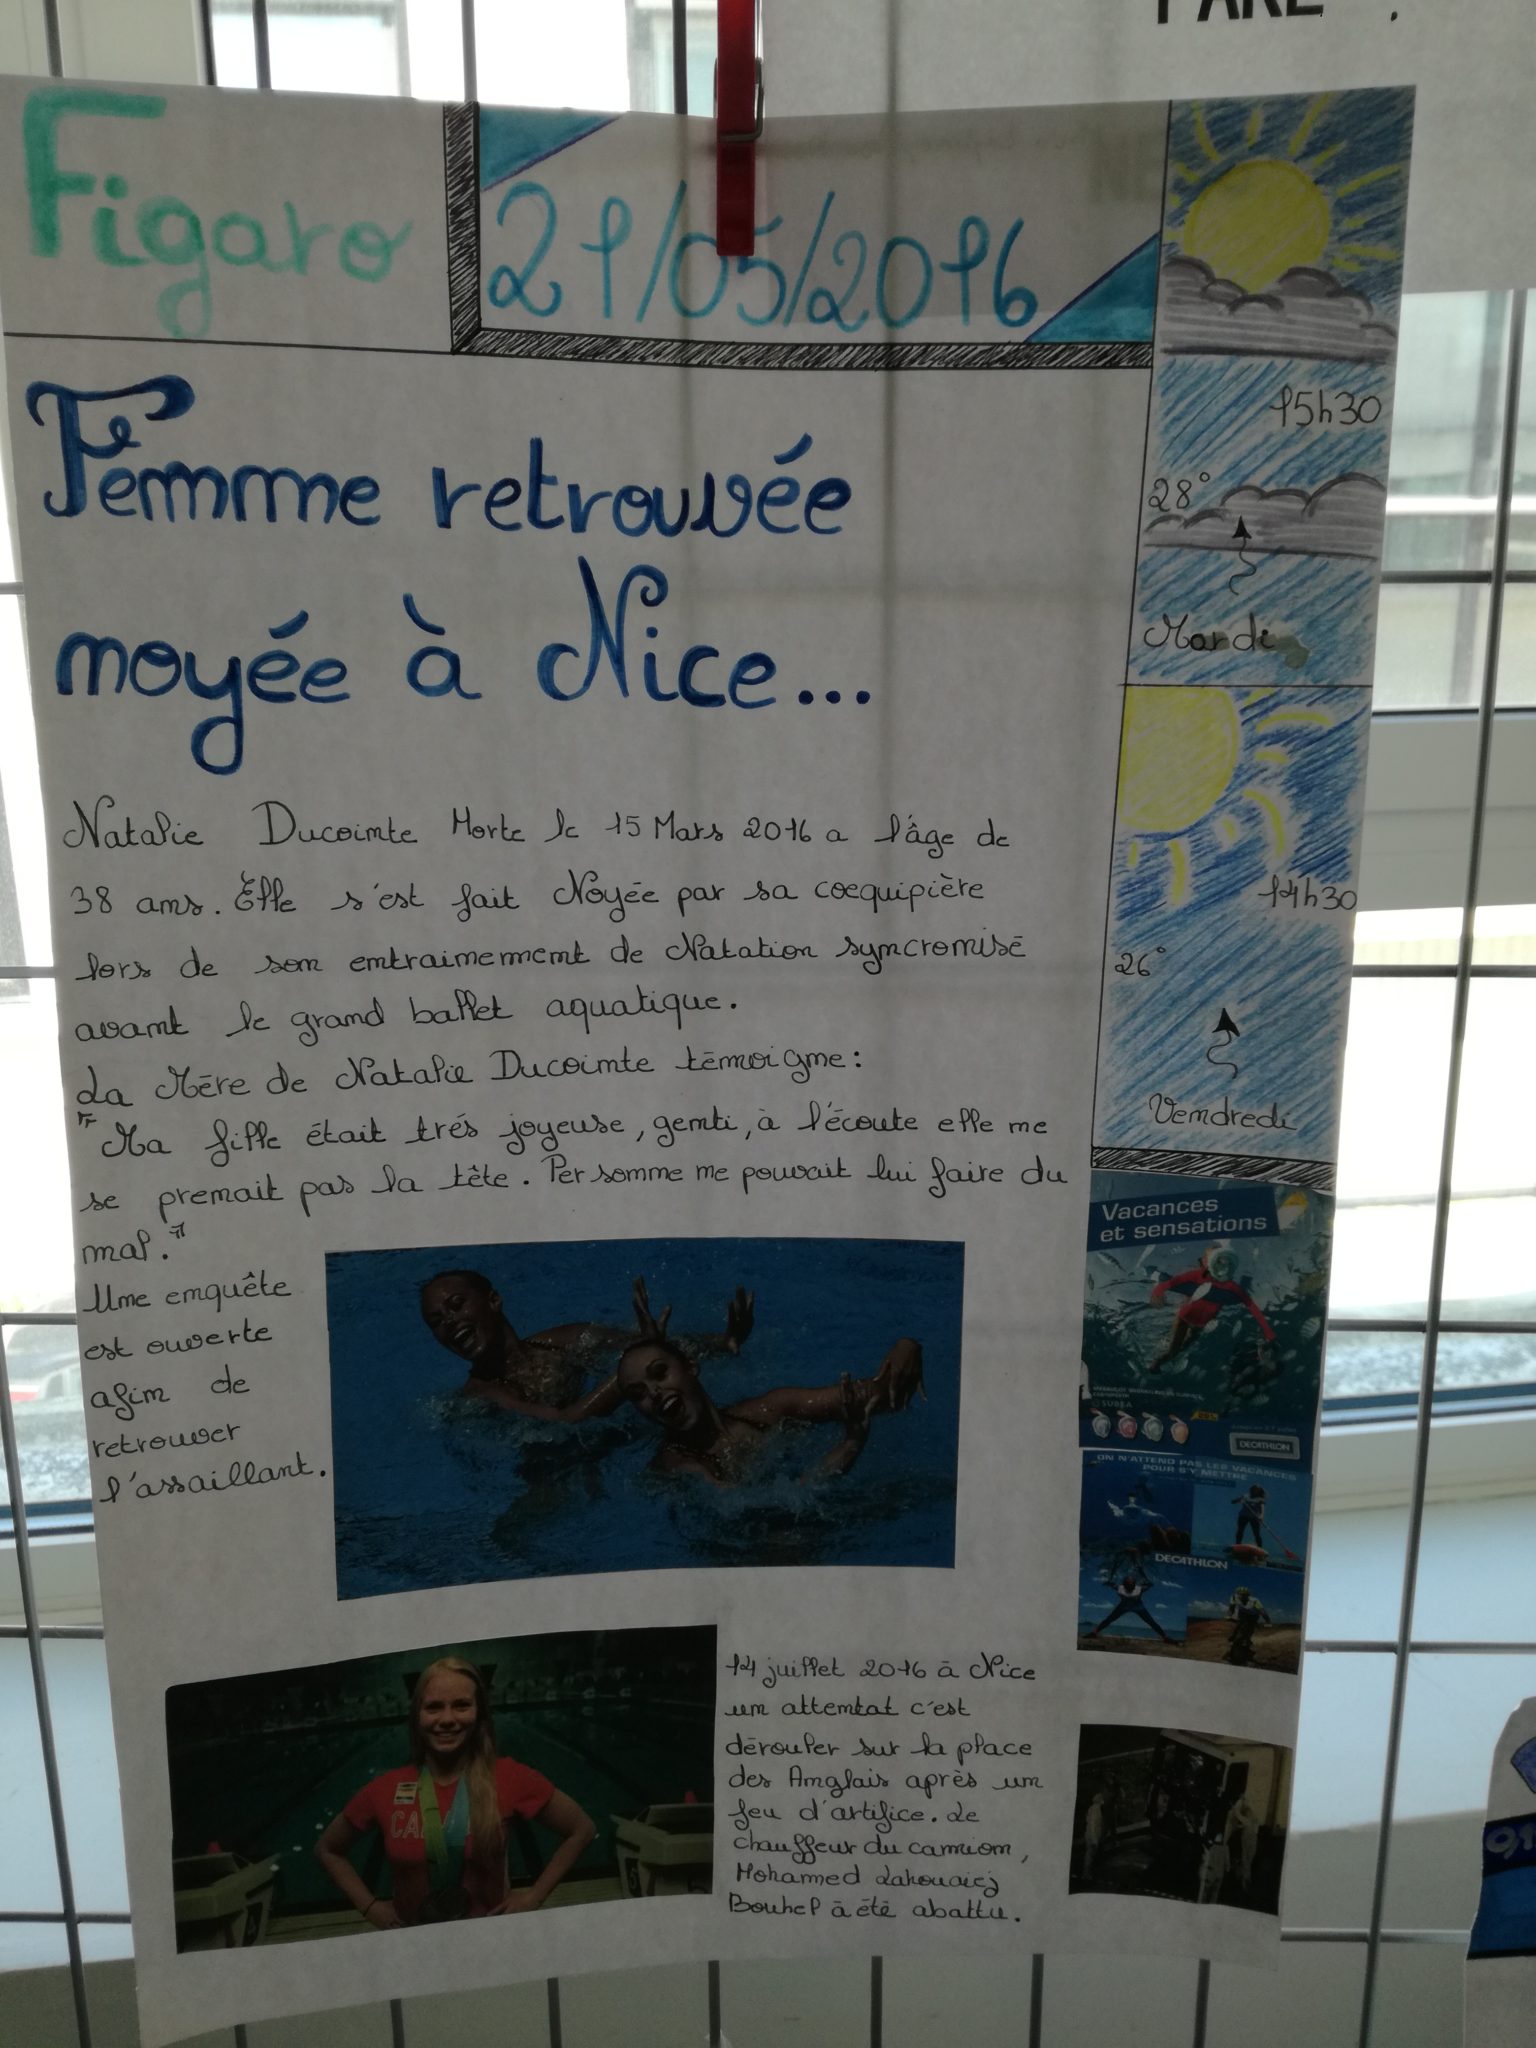 Figaro
21/05/2016
15h30
28°
Mardi
14h30
26°
Vendredi
Femme retrouvée
noyée à Nice...
Natalie Ducointe Morte le 15 Mars 2016 a l'âge de
38 ans. Elle s'est fait Noyée par sa coequipière
lors de son entrainement de Natation syncronisé
avant le grand ballet aquatique.
La Mère de Natalie Ducointe témoigne:
"Ma fille était trés joyeuse, genti, à l'écoute elle ne
se prenait pas la tête. Personne ne pouvait lui faire du
mal."
Une enquête
est ouverte
afin de
retrouver
l'assaillant.
Vacances
et sensations
SUBEA
DECATHLON
ON N'ATTEND PAS LES VACANCES
POUR S'Y METTRE
DECATHLON
14 juillet 2016 à Nice
un attentat c'est
dérouler sur la place
des Anglais après un
feu d'artifice. Le
chauffeur du camion,
Mohamed Lahouaiej
Bouhel à été abattu.